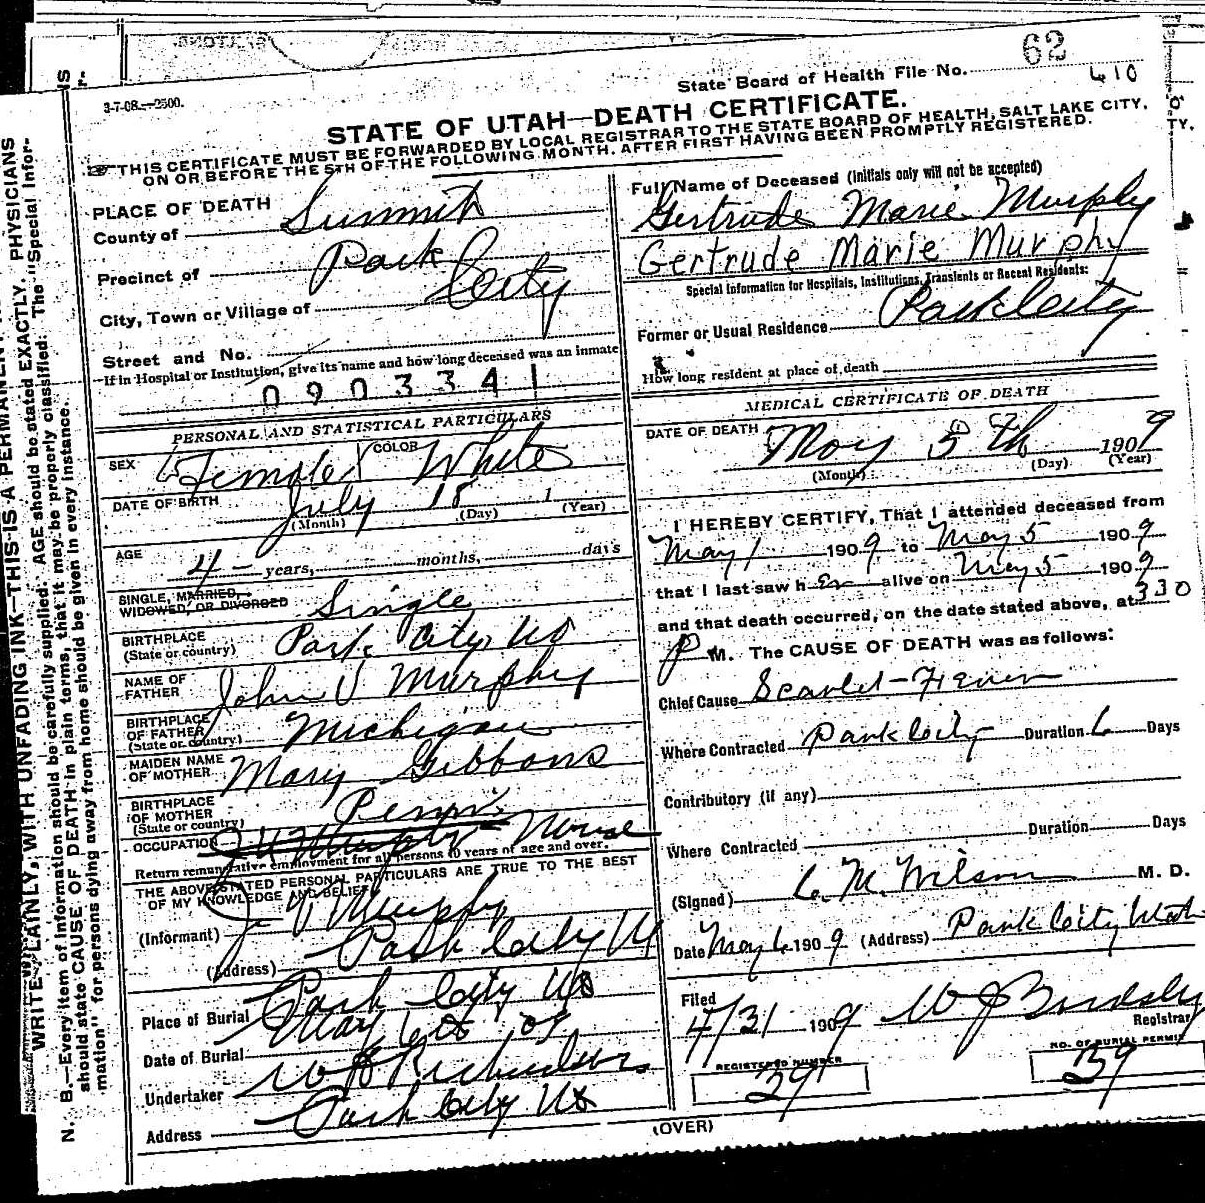 62
State Board of Health File No.
410
3-7-08.—2500.
STATE OF UTAH—DEATH CERTIFICATE.
THIS CERTIFICATE MUST BE FORWARDED BY LOCAL REGISTRAR TO THE STATE BOARD OF HEALTH, SALT LAKE CITY,
ON OR BEFORE THE 5TH OF THE FOLLOWING MONTH, AFTER FIRST HAVING BEEN PROMPTLY REGISTERED.
PLACE OF DEATH
County of Summit
Precinct of Park
City, Town or Village of City
Street and No.
If in Hospital or Institution, give its name and how long deceased was an inmate
0903341
PERSONAL AND STATISTICAL PARTICULARS
SEX Female COLOR White
DATE OF BIRTH July 18
(Month) (Day) (Year)
AGE 4 – years, months, days
SINGLE, MARRIED,
WIDOWED, OR DIVORCED Single
BIRTHPLACE
(State or country) Park City Ut
NAME OF
FATHER John J Murphy
BIRTHPLACE
OF FATHER
(State or country) Michigan
MAIDEN NAME
OF MOTHER Mary Gibbons
BIRTHPLACE
OF MOTHER
(State or country) Penn
OCCUPATION
Return remunerative employment for all persons 10 years of age and over.
THE ABOVE STATED PERSONAL PARTICULARS ARE TRUE TO THE BEST
OF MY KNOWLEDGE AND BELIEF
(Informant) J. J Murphy
(Address) Park City Ut
Place of Burial Park City Ut
Date of Burial May 6th 09
Undertaker Richardson
Address Park City Ut
Full Name of Deceased (Initials only will not be accepted)
Gertrude Marie Murphy
Gertrude Marie Murphy
Special Information for Hospitals, Institutions, Transients or Recent Residents:
Former or Usual Residence Park City
How long resident at place of death
MEDICAL CERTIFICATE OF DEATH
DATE OF DEATH May 5th 1909
(Month) (Day) (Year)
I HEREBY CERTIFY, That I attended deceased from
May 1 1909 to May 5 1909
that I last saw her alive on May 5 1909
and that death occurred, on the date stated above, at 330
P M. The CAUSE OF DEATH was as follows:
Chief Cause Scarlet-Fever
Where Contracted Park City Duration 6 Days
Contributory (if any)
Duration Days
Where Contracted
(Signed) C. M. Wilson M. D.
Date May 6 1909 (Address) Park City Utah
Filed
4/31 1909
Registrar
REGISTERED NUMBER
NO. OF BURIAL PERMIT
39
(OVER)
WRITE PLAINLY, WITH UNFADING INK—THIS IS A PERMANENT
N. B.—Every item of information should be carefully supplied. AGE should be stated EXACTLY. PHYSICIANS
should state CAUSE OF DEATH in plain terms, that it may be properly classified. The "Special Infor-
mation" for persons dying away from home should be given in every instance.